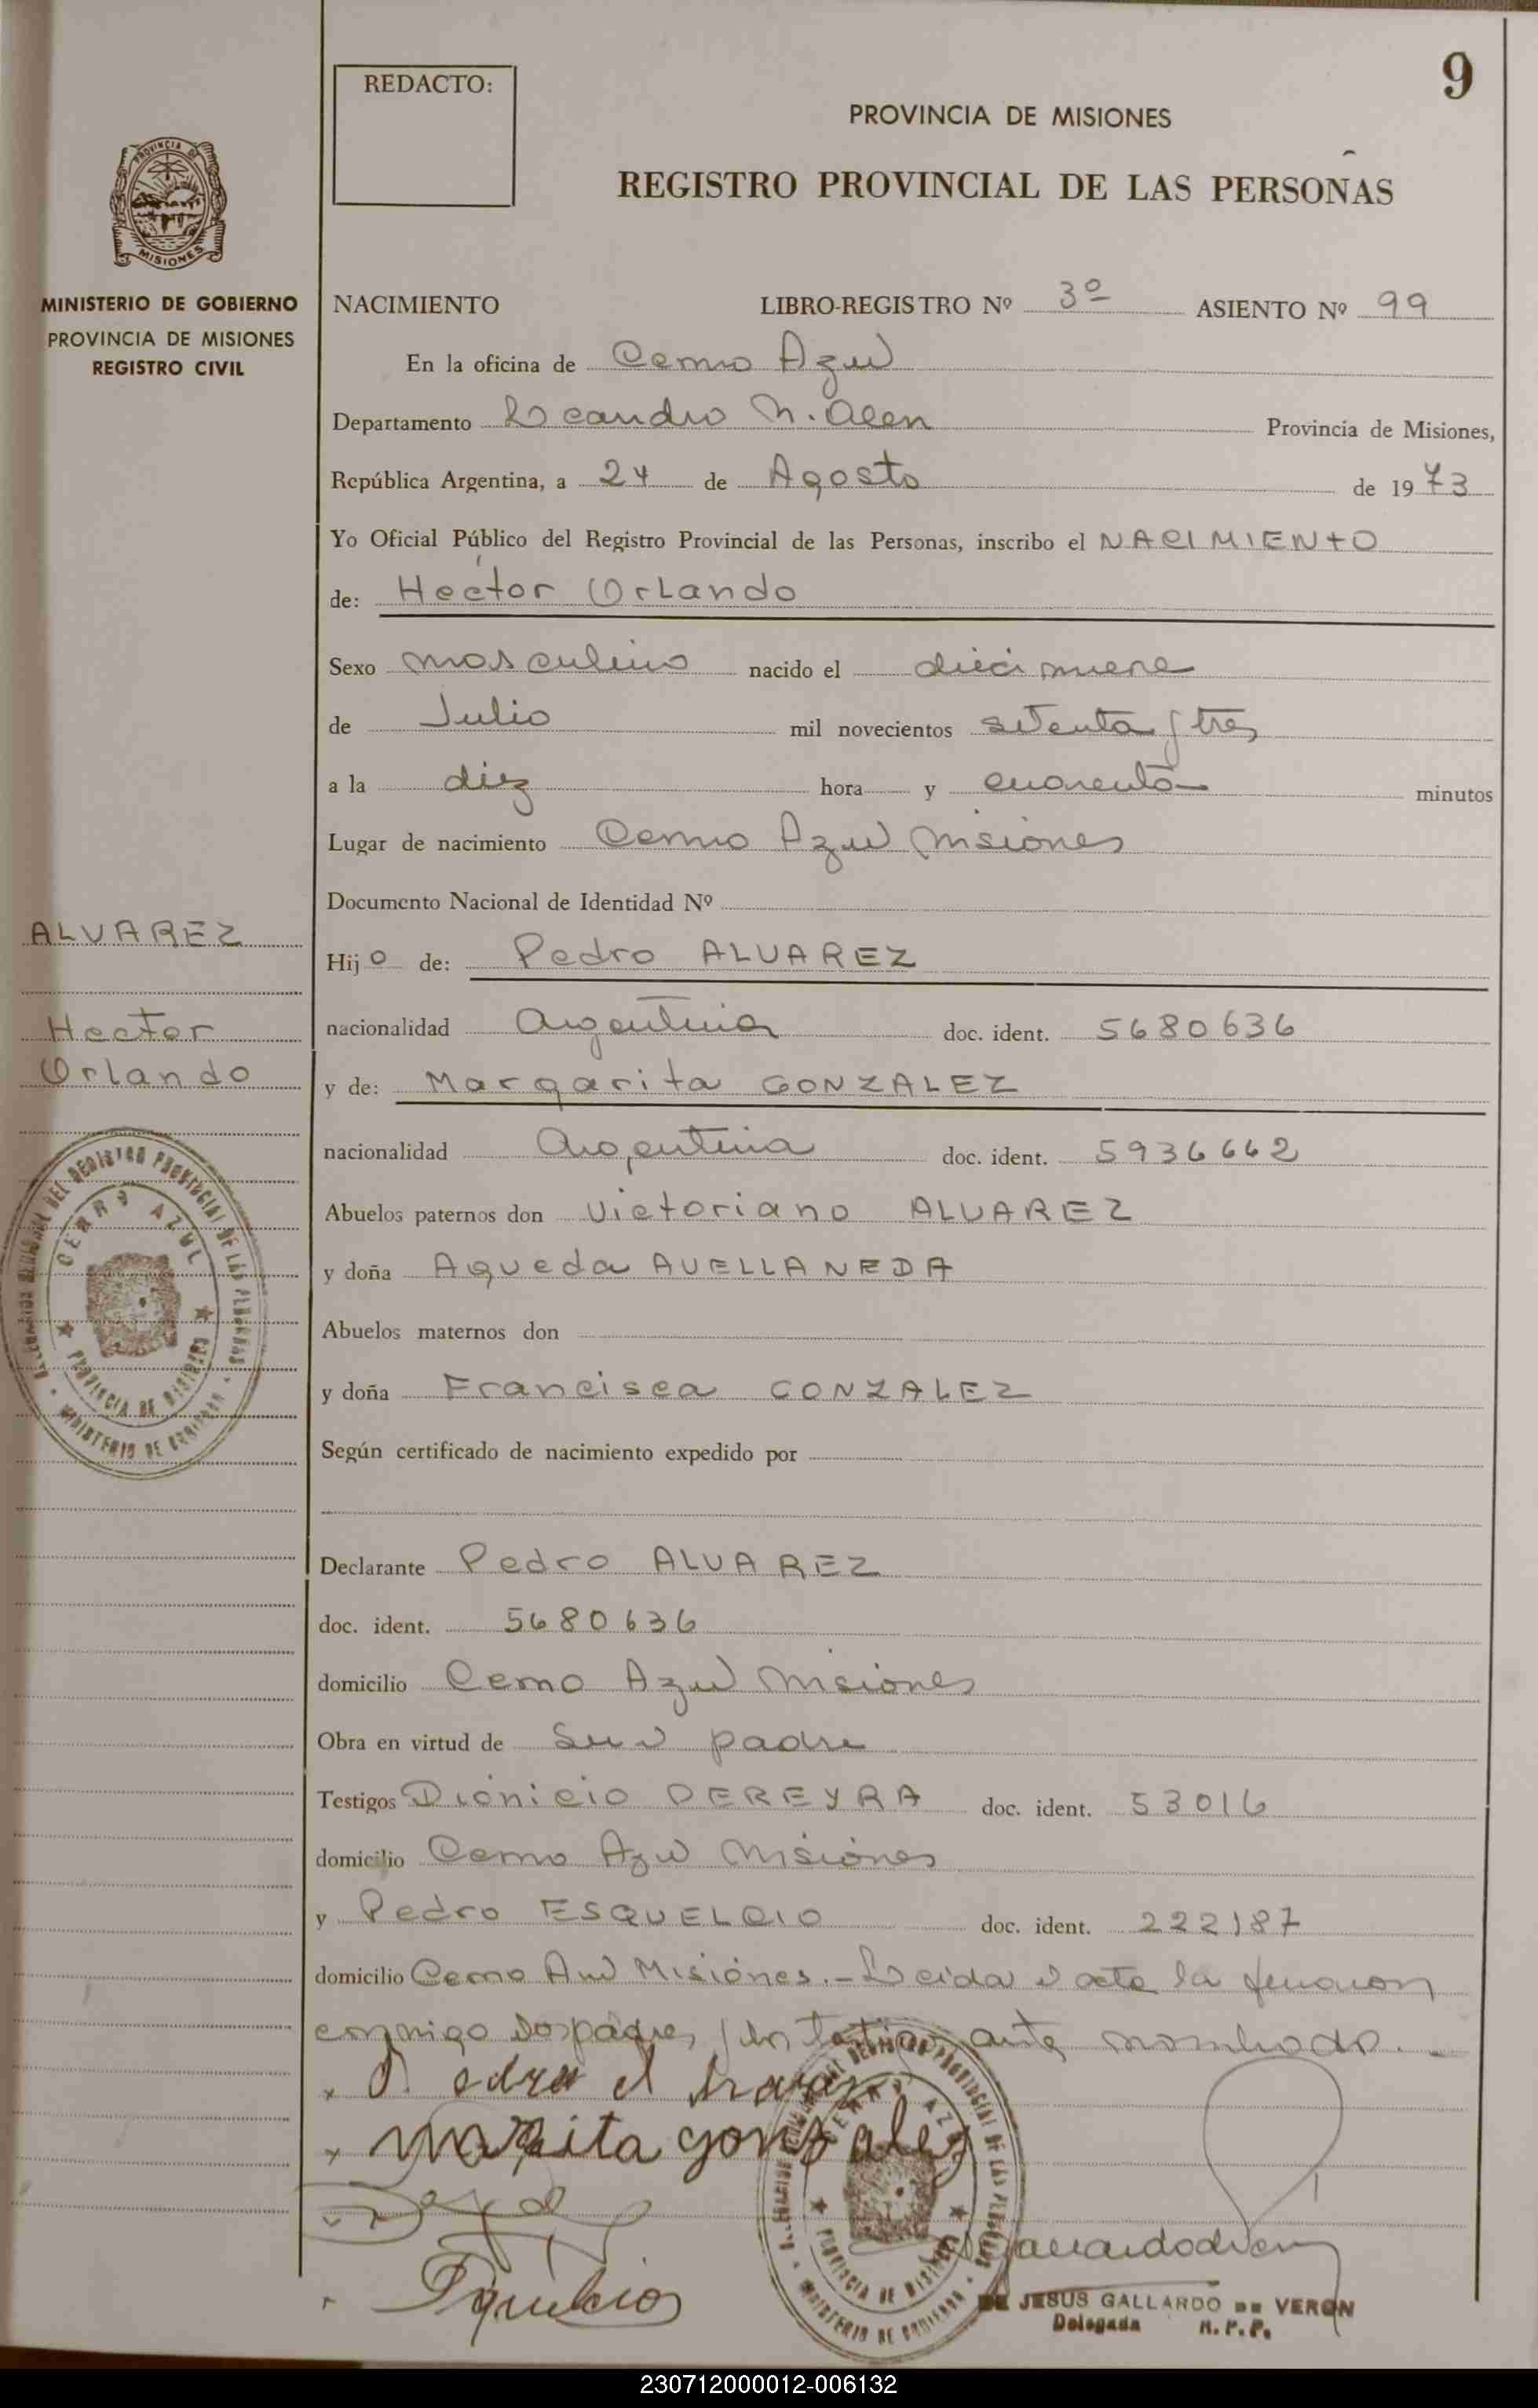 9
REDACTO:
PROVINCIA DE MISIONES
REGISTRO PROVINCIAL DE LAS PERSONAS
PROVINCIA DE
MISIONES
MINISTERIO DE GOBIERNO
PROVINCIA DE MISIONES
REGISTRO CIVIL
NACIMIENTO LIBRO-REGISTRO Nº 3º ASIENTO Nº 99
En la oficina de Cerro Azul
Departamento Leandro N. Alem Provincia de Misiones,
República Argentina, a 24 de Agosto de 1973
Yo Oficial Público del Registro Provincial de las Personas, inscribo el NACIMIENTO
de: Hector Orlando
Sexo masculino nacido el diecinueve
de Julio mil novecientos setenta y tres
a la diez hora y cuarenta minutos
Lugar de nacimiento Cerro Azul Misiones
Documento Nacional de Identidad Nº
ALVAREZ
Hector
Orlando
Hijo de: Pedro ALVAREZ
nacionalidad Argentina doc. ident. 5680636
y de: Margarita GONZALEZ
nacionalidad Argentina doc. ident. 5936642
Abuelos paternos don Victoriano ALVAREZ
y doña Agueda AVELLANEDA
Abuelos maternos don
y doña Francisca GONZALEZ
Según certificado de nacimiento expedido por
Declarante Pedro ALVAREZ
doc. ident. 5680636
domicilio Cerro Azul Misiones
Obra en virtud de ser padre
Testigos Dionicio PEREYRA doc. ident. 53016
domicilio Cerro Azul Misiones
y Pedro ESQUELCIO doc. ident. 222187
domicilio Cerro Azul Misiones.- Leida el acta la firmaron
conmigo los padres y los testigos ante nombrado.-
marita gonzalez
CERRO AZUL
PROVINCIA DE MISIONES
MINISTERIO DE GOBIERNO
DE JESUS GALLARDO DE VERON
Delegada R.P.P.
230712000012-006132